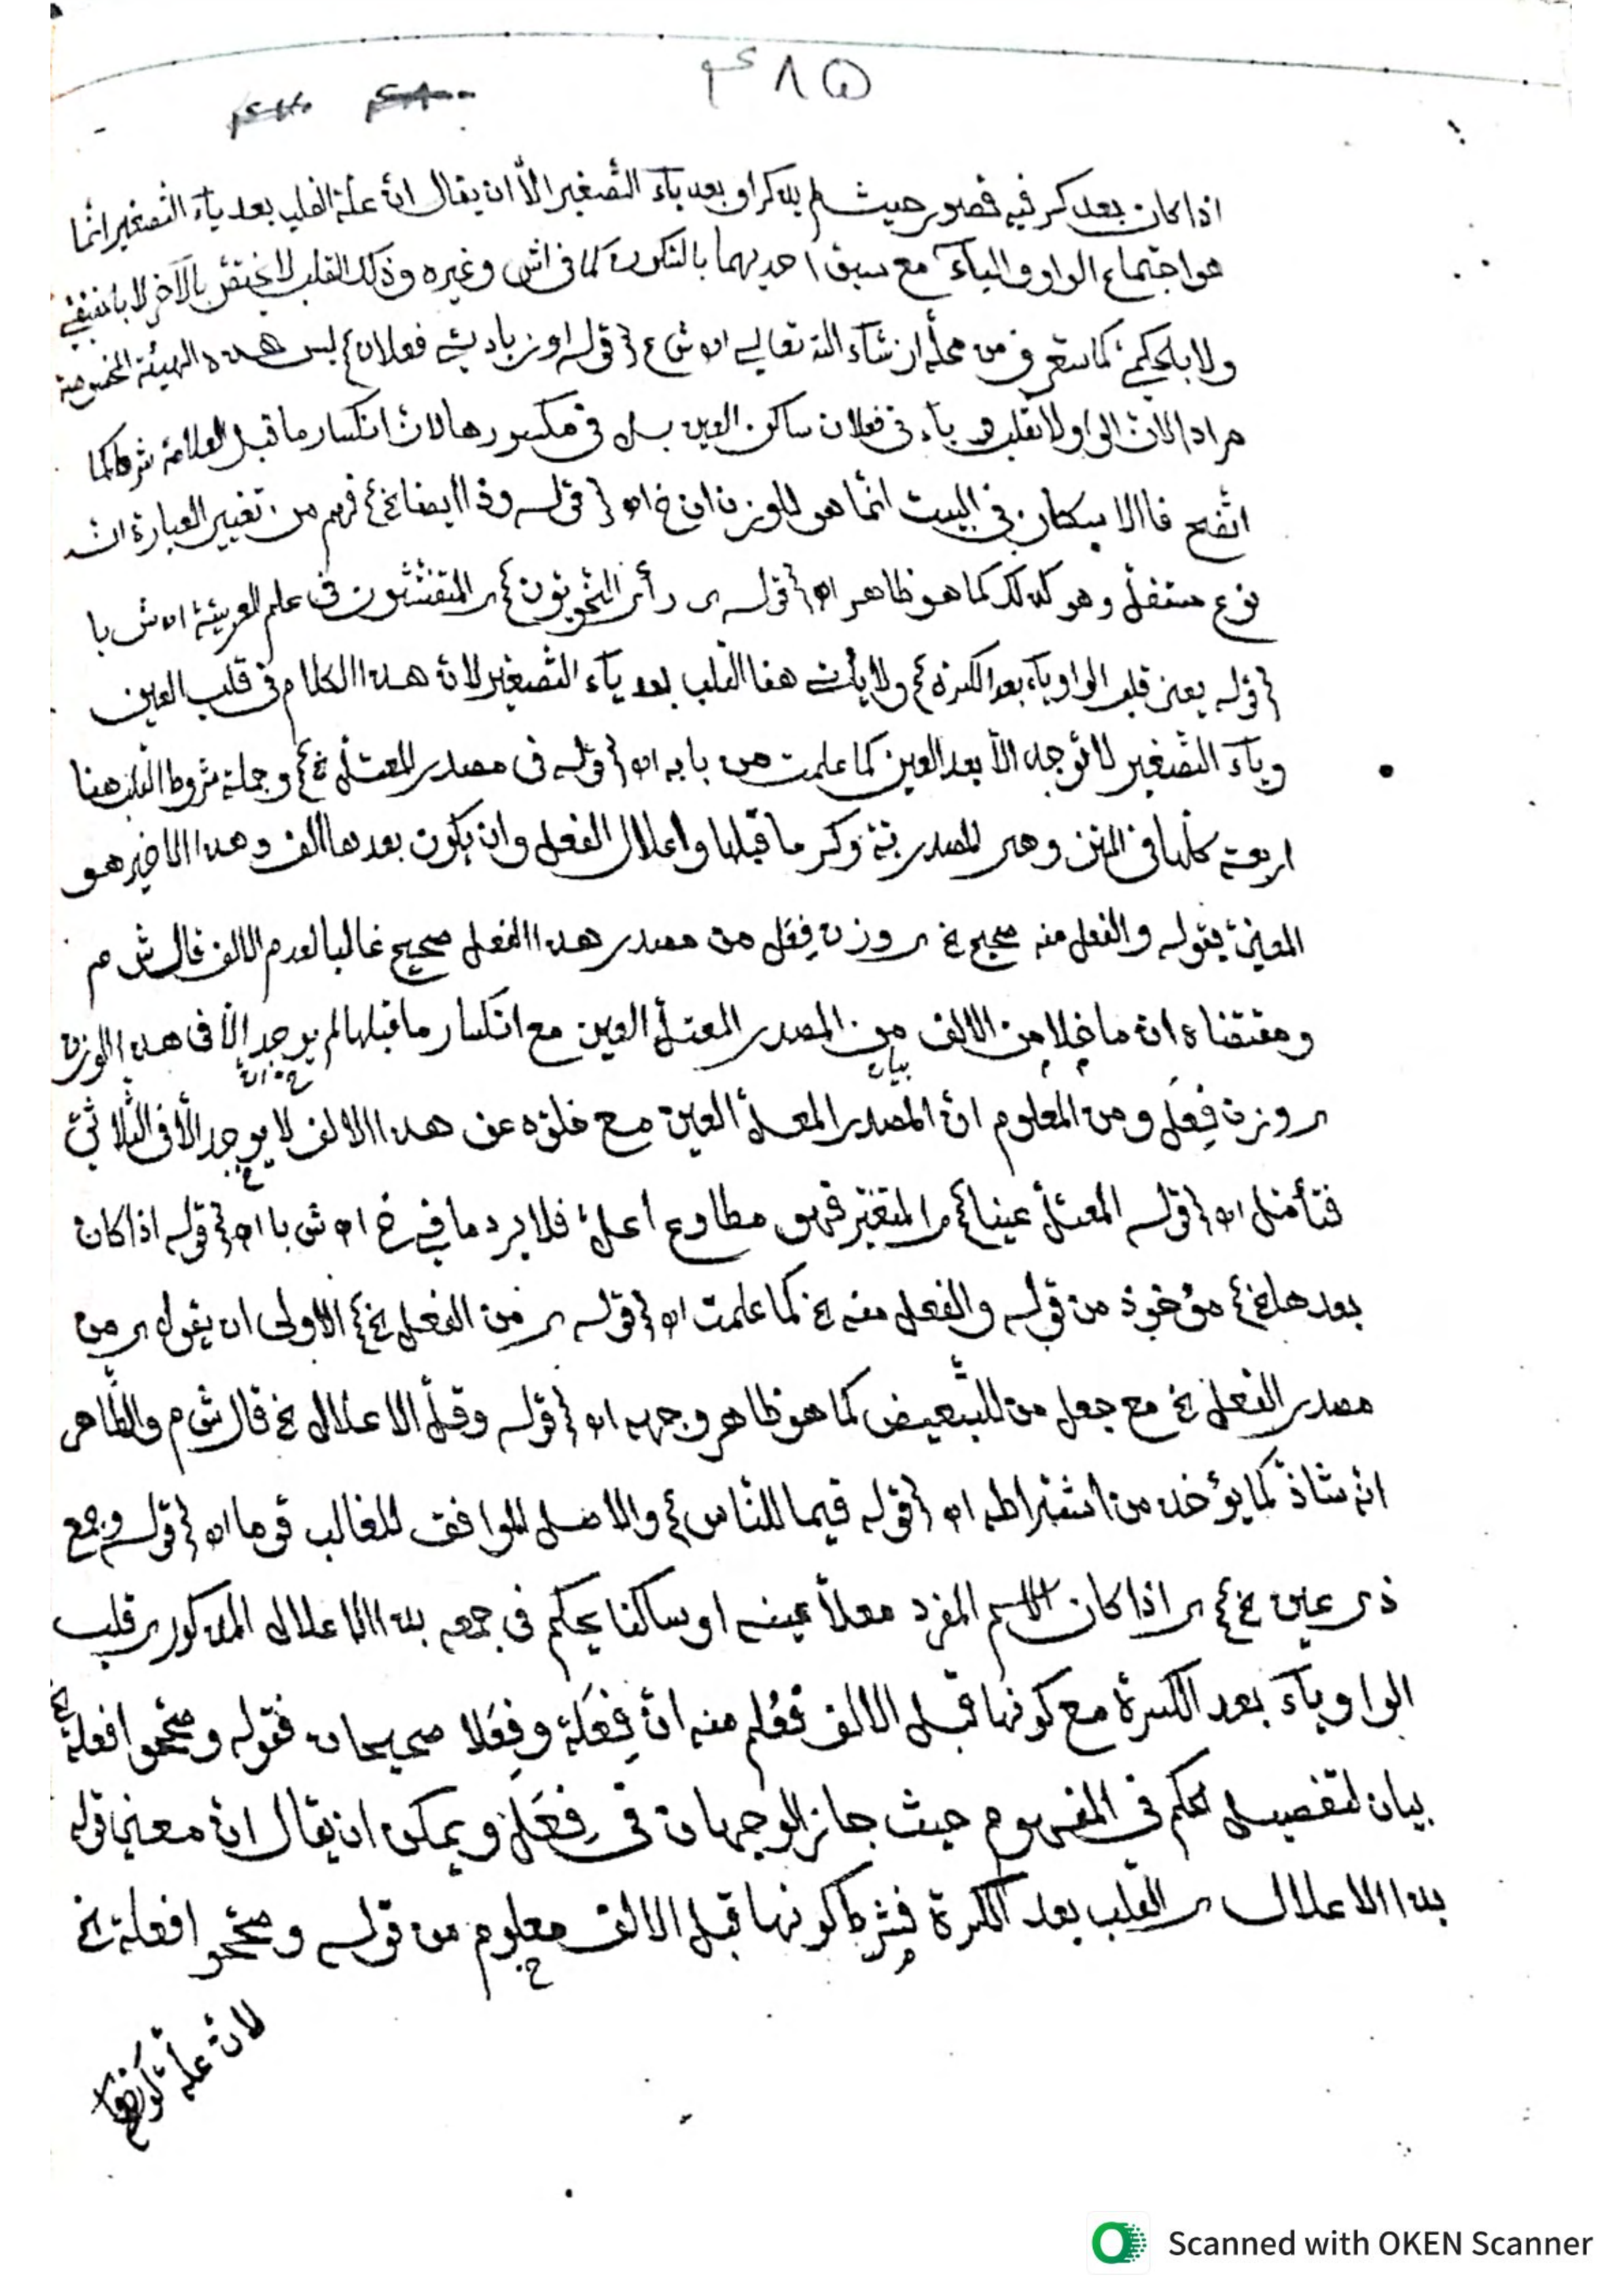 ٤٨٥
اذا كان بعد كسر فيه قصور حيث لم يذكر او بعد ياء التّصغير الّا ان يقال انّ علّة القلب بعد ياء التّصغير انّما
هو اجتماع الواو والياء مع سبق احديهما بالسّكون كما فى اش وغيره وذلك القلب لا يختصّ بالآخر لا
ولا كما ستعرف من محلّه ان شاء الله تعالى اه ش ع {قوله او زيادتى فعلان} ليس هذه الهيئة المخصوصة
مرادا لانّ الواو لا تقلب ياء فى فعلان ساكن العين بل فى مكسورها لانّ انكسار ما قبل العلامة شرط كما
اتّضح فالاسكان فى البيت انّما هو للوزن اه {قوله وذا ايضا الخ} فهم من تغيير العبارة انّه
نوع مستقلّ وهو كذلك كما هو ظاهر اه {قوله رأى النّحويّون} اى المتفنّنون فى علم العربيّة اه ش با
{قوله يعنى قلب الواو ياء بعد الكسرة} ولا يأتى هنا القلب بعد ياء التّصغير لانّ هذا الكلام فى قلب العين
وياء التّصغير لا توجد الّا بعد العين كما علمت من بابه اه {قوله فى مصدر المعتلّ الخ} وجملة شروط القلب هنا
اربعة كلّها فى المتن وهى المصدريّة وكسر ما قبلها واعلال الفعل وان يكون بعدها الف وهذا الاخير هو
المعنىّ بقوله والفعل منه صحيح الخ اى وزن فِعَل من مصدر هذا الفعل صحيح غالبا لعدم الالف قال ش م
ومقتضاه انّ ما خلا من الالف من المصدر المعتلّ العين مع انكسار ما قبلها لم يوجد الّا فى هذا الوزن
بيان
اى وزن فِعَل ومن المعلوم انّ المصدر المعلّ العين مع خلوّه عن هذا الالف لا يوجد الّا فى الثّلاثىّ
فتأمّل اه {قوله المعتلّ عينا} اى المتغيّر فهو مطاوع اعلّ فلا يرد ما فى خ اه ش با اه {قوله اذا كان
بعدها الخ} مؤخوذ من قوله والفعل منه الخ كما علمت اه {قوله اى من الفعل الخ} الاولى ان يقول اى من
مصدر الفعل الخ مع جعل من للتّبعيض كما هو ظاهر وجهه اه {قوله وقلّ الاعلال الخ قال ش م والظّاهر
انّه شاذّ كما يؤخذ من اشتراطه اه {قوله قيما للنّاس} والاصل الموافق للغالب قوما اه {قوله وجمع
ذى عين الخ} اى اذا كان الاسم المفرد معلّا عينه او ساكنا يحكم فى جمعه بذا الاعلال المذكور اى قلب
الواو ياء بعد الكسرة مع كونها قبل الالف فعُلم منه انّ فِعَلة وفِعَلا صحيحان فقوله وصحّحوا فعلة الخ
بيان لتفصيل الحكم فى المفهوم حيث جاز الوجهان فى فِعَل ويمكن ان يقال انّ معنى قوله
بذا الاعلال اى القلب بعد الكسرة فشرط كونها قبل الالف معلوم من قوله وصحّحوا فعلة الخ
لانّ علّة
Scanned with OKEN Scanner